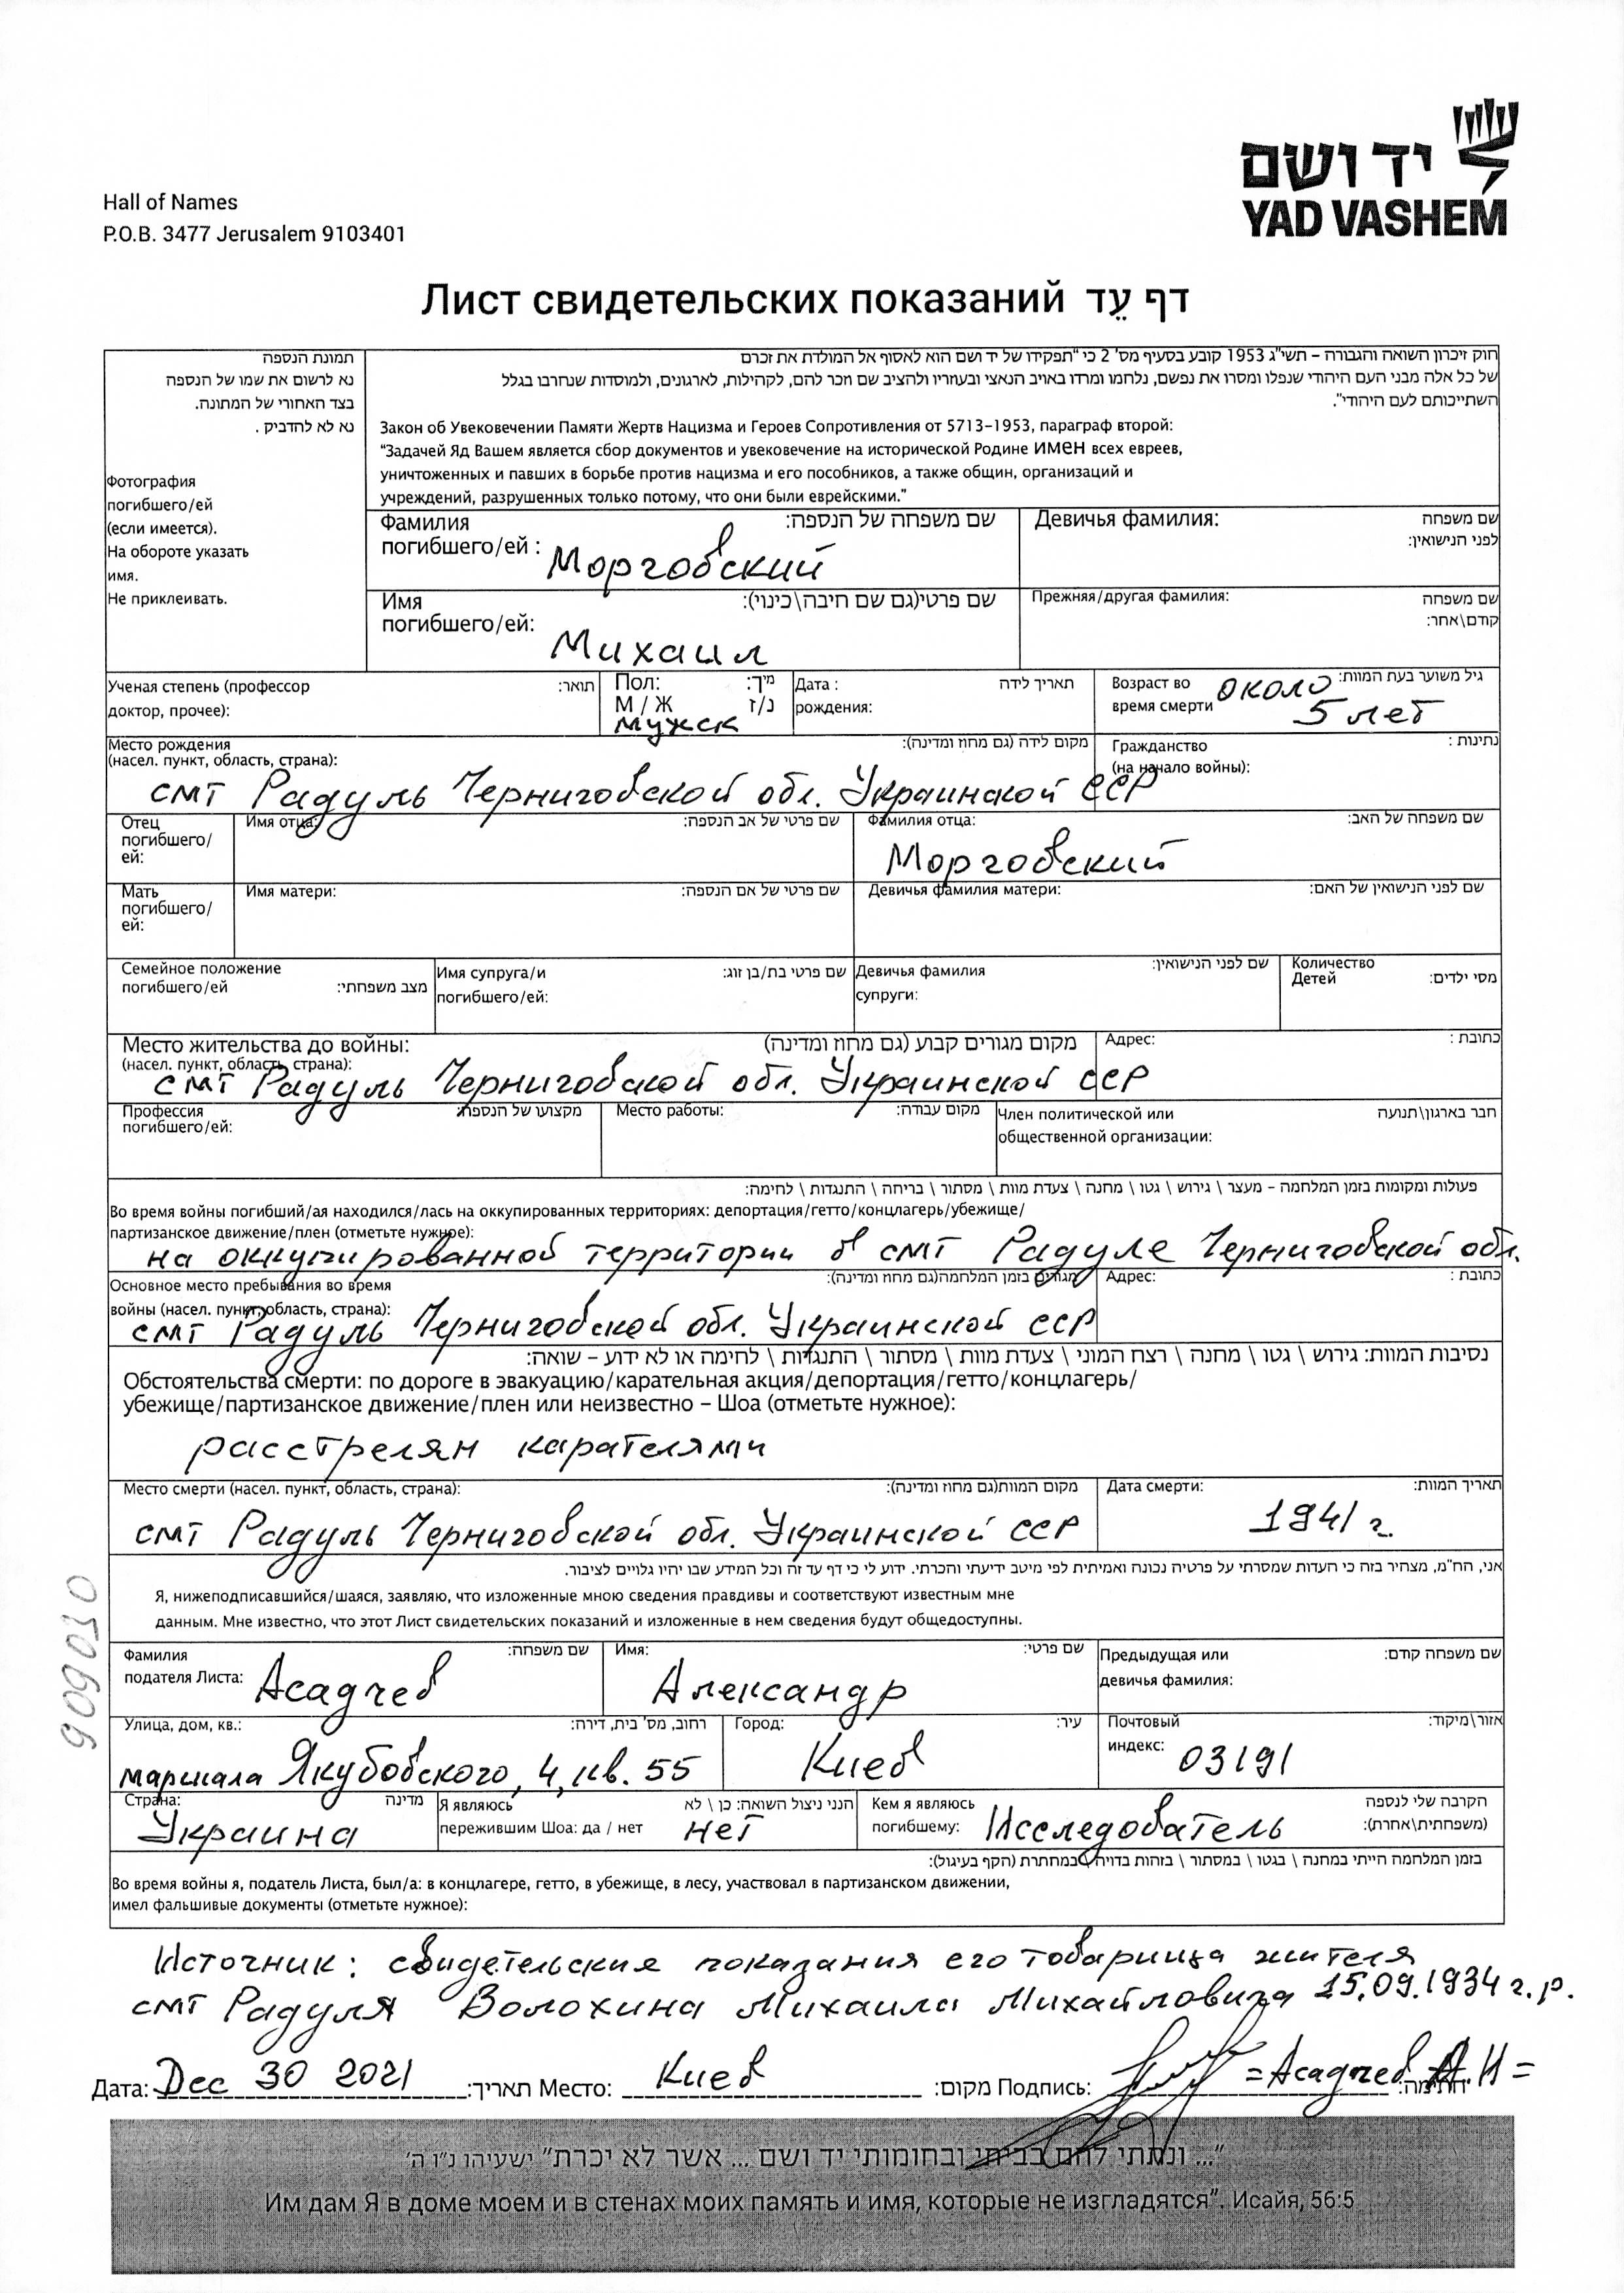 יד ושם
YAD VASHEM
Hall of Names
P.O.B. 3477 Jerusalem 9103401
Лист свидетельских показаний דף עֵד
תמונת הנספה
נא לרשום את שמו של הנספה
בצד האחורי של המתונה.
נא לא להדביק .
Фотография
погибшего/ей
(если имеется).
На обороте указать
имя.
Не приклеивать.
חוק זיכרון השואה והגבורה – תשי"ג 1953 קובע בסעיף מס' 2 כי "תפקידו של יד ושם הוא לאסוף אל המולדת את זכרם
של כל אלה מבני העם היהודי שנפלו ומסרו את נפשם, נלחמו ומרדו באויב הנאצי ובעוזריו ולהציב שם וזכר להם, לקהילות, לארגונים, ולמוסדות שנחרבו בגלל
השתייכותם לעם היהודי".
Закон об Увековечении Памяти Жертв Нацизма и Героев Сопротивления от 5713–1953, параграф второй:
"Задачей Яд Вашем является сбор документов и увековечение на исторической Родине имен всех евреев,
уничтоженных и павших в борьбе против нацизма и его пособников, а также общин, организаций и
учреждений, разрушенных только потому, что они были еврейскими."
Фамилия שם משפחה של הנספה:
погибшего/ей : Морговский
Девичья фамилия: שם משפחה
לפני הנישואין:
Имя שם פרטי(גם שם חיבה\כינוי):
погибшего/ей: Михаил
Прежняя/другая фамилия: שם משפחה
קודם\אחר:
Ученая степень (профессор תואר:
доктор, прочее):
Пол: מין:
М / Ж ז/נ
мужск
Дата : תאריך לידה
рождения:
Возраст во גיל משוער בעת המוות:
время смерти около
5 лет
Место рождения מקום לידה (גם מחוז ומדינה):
(насел. пункт, область, страна):
Гражданство נתינות :
(на начало войны):
смт Радуль Черниговской обл. Украинской ССР
Отец
погибшего/
ей:
Имя отца: שם פרטי של אב הנספה:
Фамилия отца: שם משפחה של האב:
Морговский
Мать
погибшего/
ей:
Имя матери: שם פרטי של אם הנספה:
Девичья фамилия матери: שם לפני הנישואין של האם:
Семейное положение
погибшего/ей מצב משפחתי:
Имя супруга/и שם פרטי בת/בן זוג:
погибшего/ей:
Девичья фамилия שם לפני הנישואין:
супруги:
Количество
Детей מסי ילדים:
Место жительства до войны: מקום מגורים קבוע (גם מחוז ומדינה)
(насел. пункт, область, страна):
Адрес: כתובת :
смт Радуль Черниговской обл. Украинской ССР
Профессия מקצועו של הנספה:
погибшего/ей:
Место работы: מקום עבודה:
Член политической или חבר בארגון\תנועה
общественной организации:
פעולות ומקומות בזמן המלחמה – מעצר \ גירוש \ גטו \ מחנה \ צעדת מוות \ מסתור \ בריחה \ התנגדות \ לחימה:
Во время войны погибший/ая находился/лась на оккупированных территориях: депортация/гетто/концлагерь/убежище/
партизанское движение/плен (отметьте нужное):
на оккупированной территории в смт Радуле Черниговской обл.
Основное место пребывания во время מגורים בזמן המלחמה(גם מחוז ומדינה):
войны (насел. пункт, область, страна):
Адрес: כתובת :
смт Радуль Черниговской обл. Украинской ССР
נסיבות המוות: גירוש \ גטו \ מחנה \ רצח המוני \ צעדת מוות \ מסתור \ התנגדות \ לחימה או לא ידוע – שואה:
Обстоятельства смерти: по дороге в эвакуацию/карательная акция/депортация/гетто/концлагерь/
убежище/партизанское движение/плен или неизвестно – Шоа (отметьте нужное):
расстрелян карателями
Место смерти (насел. пункт, область, страна): מקום המוות(גם מחוז ומדינה):
Дата смерти: תאריך המוות:
смт Радуль Черниговской обл. Украинской ССР 1941 г.
אני, הח"מ, מצהיר בזה כי העדות שמסרתי על פרטיה נכונה ואמיתית לפי מיטב ידיעתי והכרתי. ידוע לי כי דף עד זה וכל המידע שבו יהיו גלויים לציבור.
Я, нижеподписавшийся/шаяся, заявляю, что изложенные мною сведения правдивы и соответствуют известным мне
данным. Мне известно, что этот Лист свидетельских показаний и изложенные в нем сведения будут общедоступны.
909010
Фамилия שם משפחה:
подателя Листа: Асадчев
Имя: שם פרטי:
Александр
Предыдущая или שם משפחה קודם:
девичья фамилия:
Улица, дом, кв.: רחוב, מס' בית, דירה:
маршала Якубовского, 4, кв. 55
Город: עיר:
Киев
Почтовый אזור\מיקוד:
индекс: 03191
Страна: מדינה
Украина
Я являюсь הנני ניצול השואה: כן \ לא
пережившим Шоа: да / нет нет
Кем я являюсь הקרבה שלי לנספה
погибшему: Исследователь (משפחתית\אחרת):
בזמן המלחמה הייתי במחנה \ בגטו \ במסתור \ בזהות בדויה \ במחתרת (הקף בעיגול):
Во время войны я, податель Листа, был/а: в концлагере, гетто, в убежище, в лесу, участвовал в партизанском движении,
имел фальшивые документы (отметьте нужное):
Источник: свидетельские показания его товарища жителя
смт Радуля Волохина Михаила Михайловича 15.09.1934 г.р.
Дата: Dec 30 2021 תאריך: Место: Киев מקום: Подпись: =Асадчев А.Н= חתימה:
"... ונתתי להם בביתי ובחומותי יד ושם ... אשר לא יכרת" ישעיהו נ"ו ה'
Им дам Я в доме моем и в стенах моих память и имя, которые не изгладятся". Исайя, 56:5